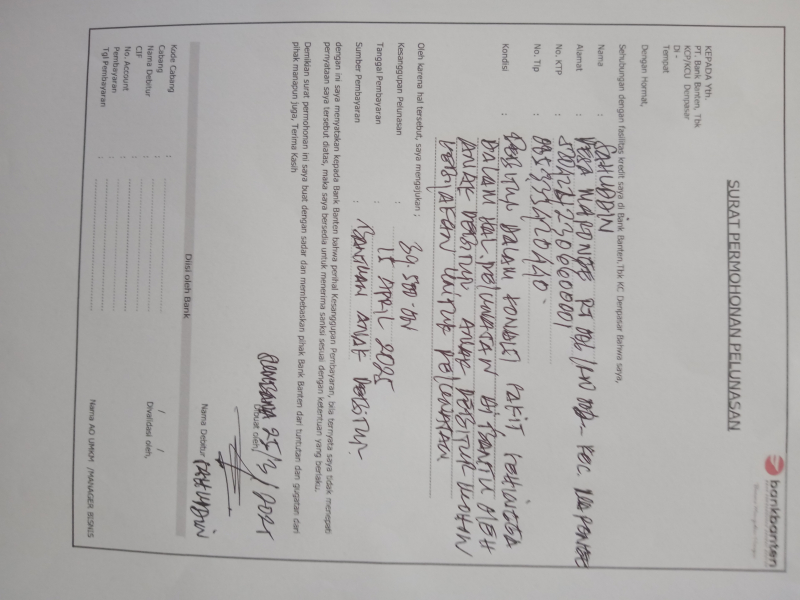 bankbanten
SURAT PERMOHONAN PELUNASAN
KEPADA Yth.
PT. Bank Banten, Tbk
KCP/KCU Denpasar
Di -
Tempat
Dengan Hormat,
Sehubungan dengan fasilitas kredit saya di Bank Banten, Tbk KC Denpasar Bahwa saya,
Nama : SAHUDDIN
Alamat : DESA RT 006/ RW 002 - KEC.
No. KTP :
No. Tlp :
Kondisi : DEBITUR DALAM KONDISI SAKIT, SEHINGGA
DALAM HAL PELUNASAN DI BANTU OLEH
ANAK DEBITUR. ANAK DEBITUR MOHON
KEBIJAKAN UNTUK PELUNASAN
Oleh karena hal tersebut, saya mengajukan :
Kesanggupan Pelunasan : 39.500.000
Tanggal Pembayaran : 15 APRIL 2025
Sumber Pembayaran : BANTUAN ANAK DEBITUR.
dengan ini saya menyatakan kepada Bank Banten bahwa perihal Kesanggupan Pembayaran, bila ternyata saya tidak menepati
pernyataan saya tersebut diatas, maka saya bersedia untuk menerima sanksi sesuai dengan ketentuan yang berlaku.
Demikian surat permohonan ini saya buat dengan sadar dan membebaskan pihak Bank Banten dari tuntutan dan gugatan dari
pihak manapun juga, Terima Kasih
25/3/2025
Dibuat oleh,
Nama Debitur SAHUDDIN
Diisi oleh Bank
Kode Cabang :
Cabang :
Nama Debitur :
CIF :
No. Account :
Pembayaran :
Tgl Pembayaran :
/ /
Divalidasi oleh,
Nama AO UMKM /MANAGER BISNIS